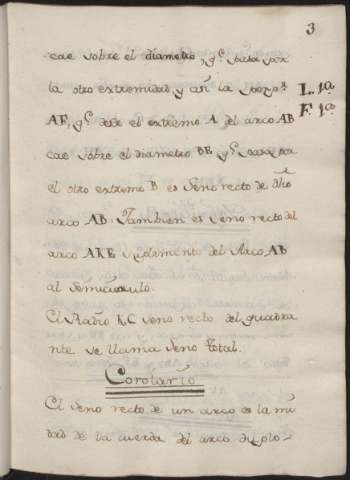 3
cae sobre el diametro, q.e pasa por
la otro extremidad, y asi la porp.n
L.a 1.a
F.a 1.a
AF, q.e desde el extremo A del arco AB
cae sobre el diametro BE q.e pasa pa
el otro extremo B es seno recto de dho
arco AB. Tambien es seno recto del
arco AKE suplemento del Arco AB
al semicirculo.
El Radio KC seno recto del quadra
nte se llama seno total.
Corolario
El seno recto de un arco es la mi
dad de la cuerda del arco duplo-